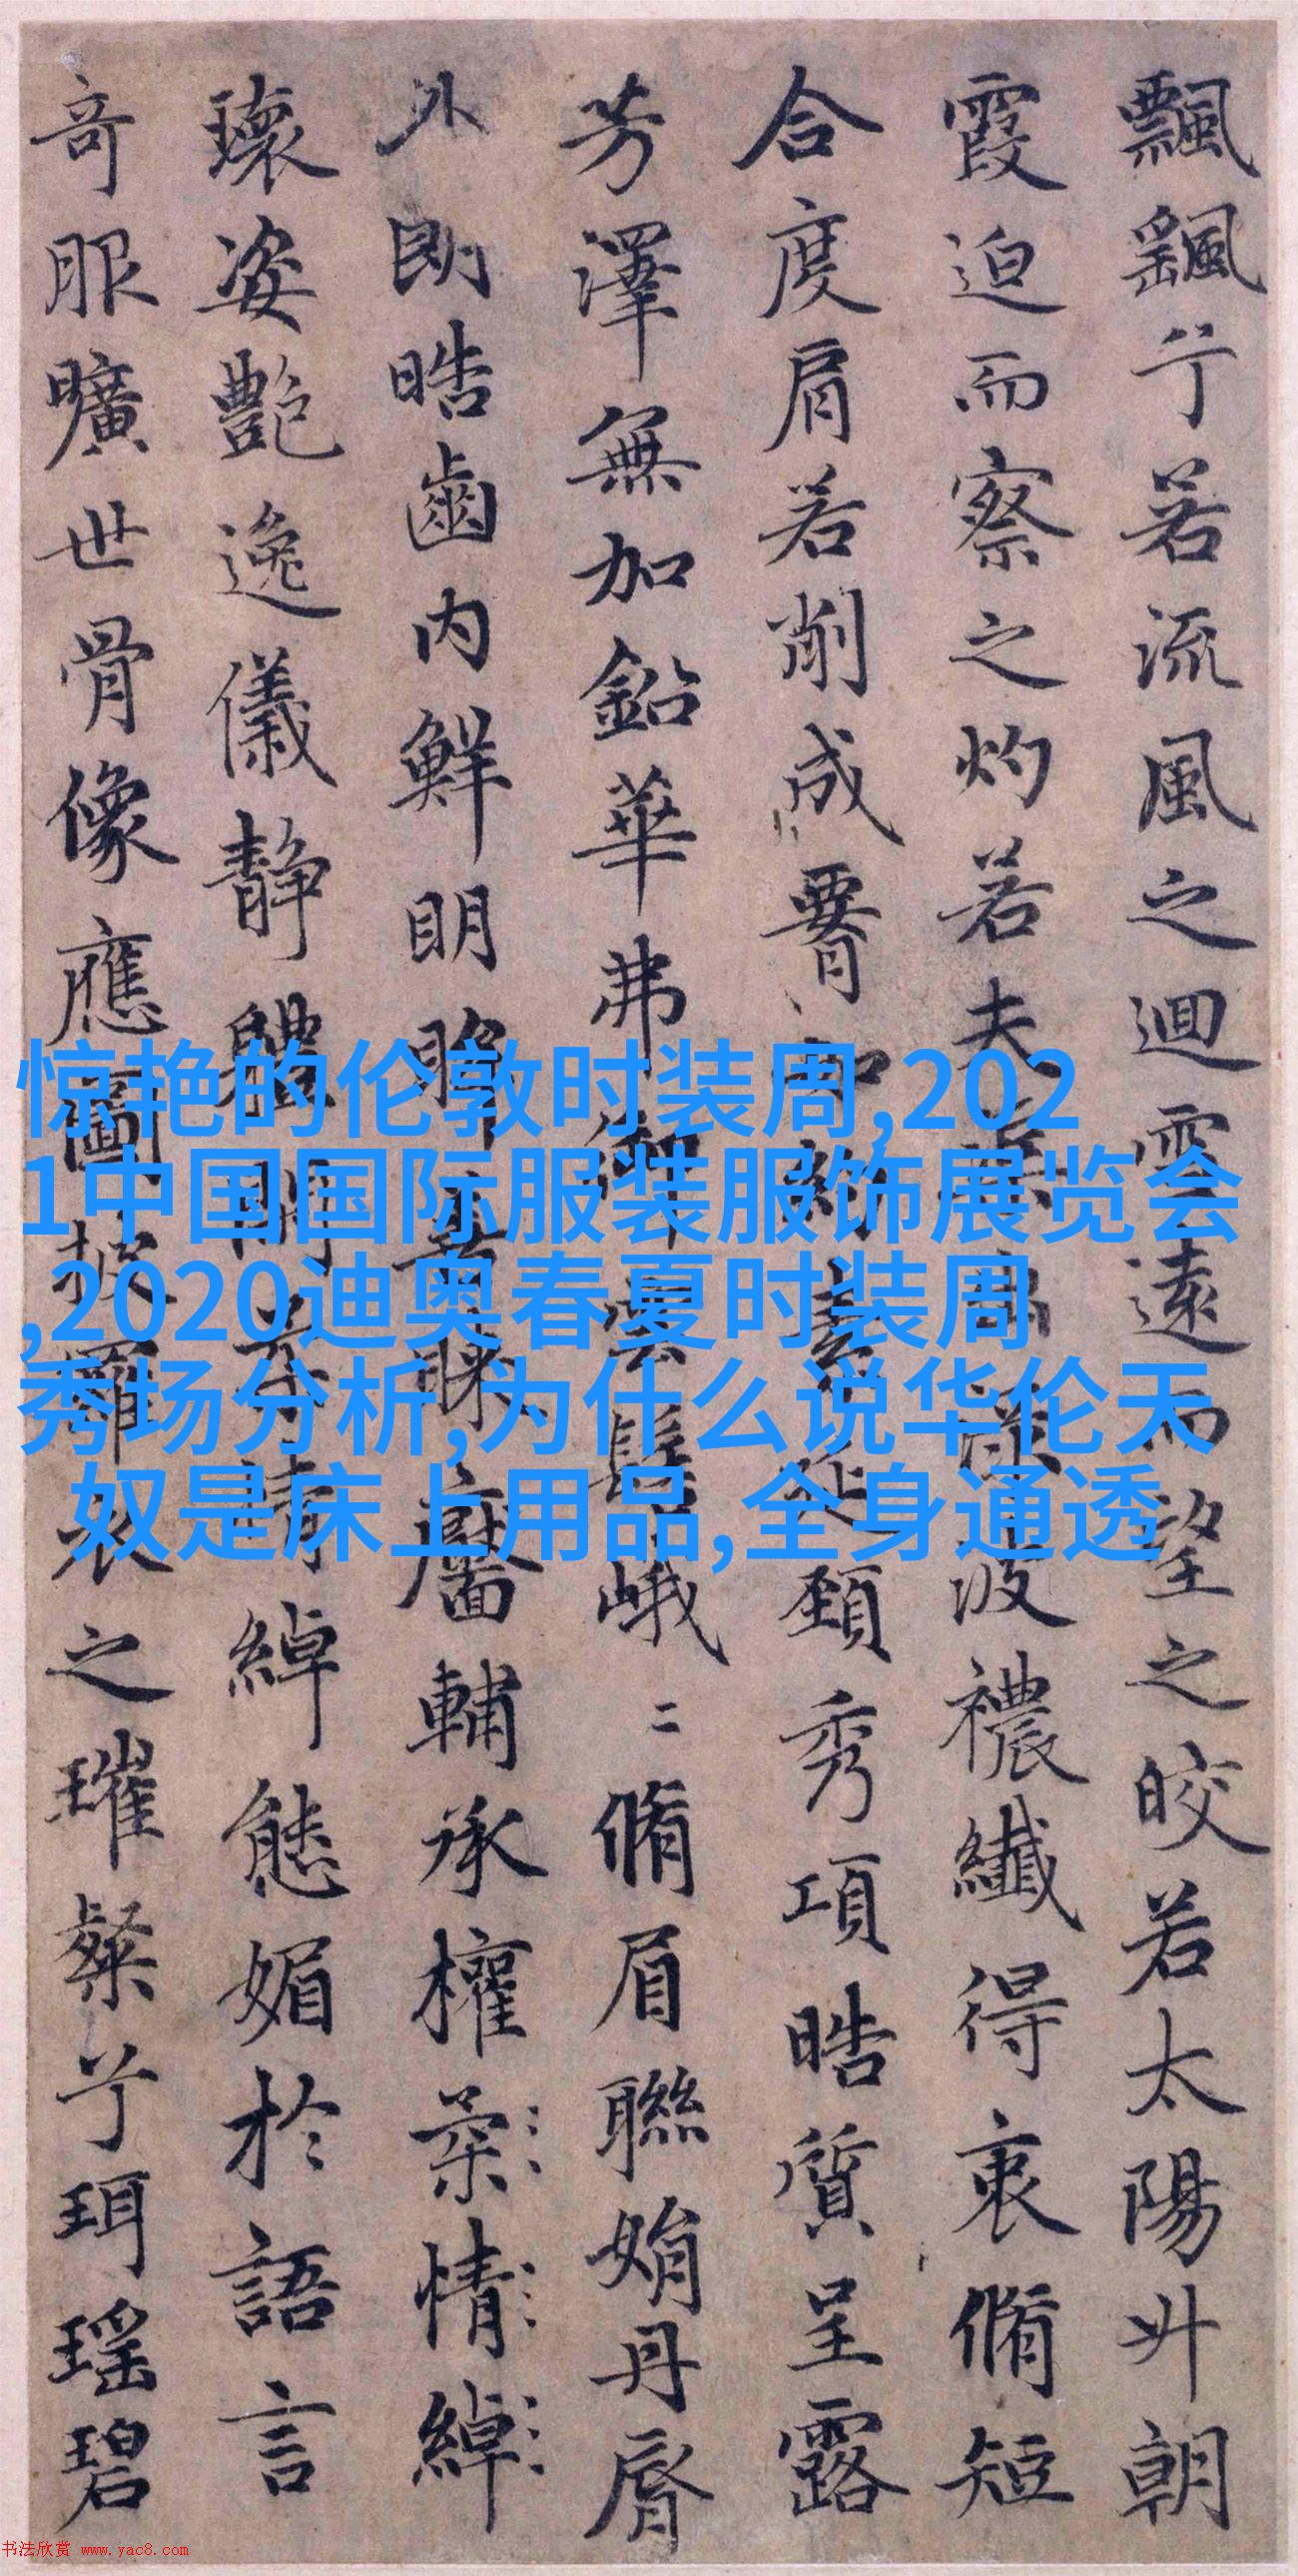 飄颻兮若流風之迴雪遠而望之皎若太陽升朝
霞迫而察之灼若夫蕖出淥波襛纖得衷脩短
合度肩若削成腰如約素延頸秀項皓質呈露
芳澤無加鉛華弗御雲髻峨二脩眉聯娟丹脣
外朗皓齒内鮮明眸善睞靨輔承權柔情綽
瓌姿艷逸儀静體閑柔情綽態媚於語言
奇服曠世骨像應圖披羅衣之璀粲兮珥瑤碧
惊艳的伦敦时装周,202
1中国国际服装服饰展览会
,2020迪奥春夏时装周
秀场分析,为什么说华伦天
奴是床上用品,全身通透
书法欣赏 www.yac8.com